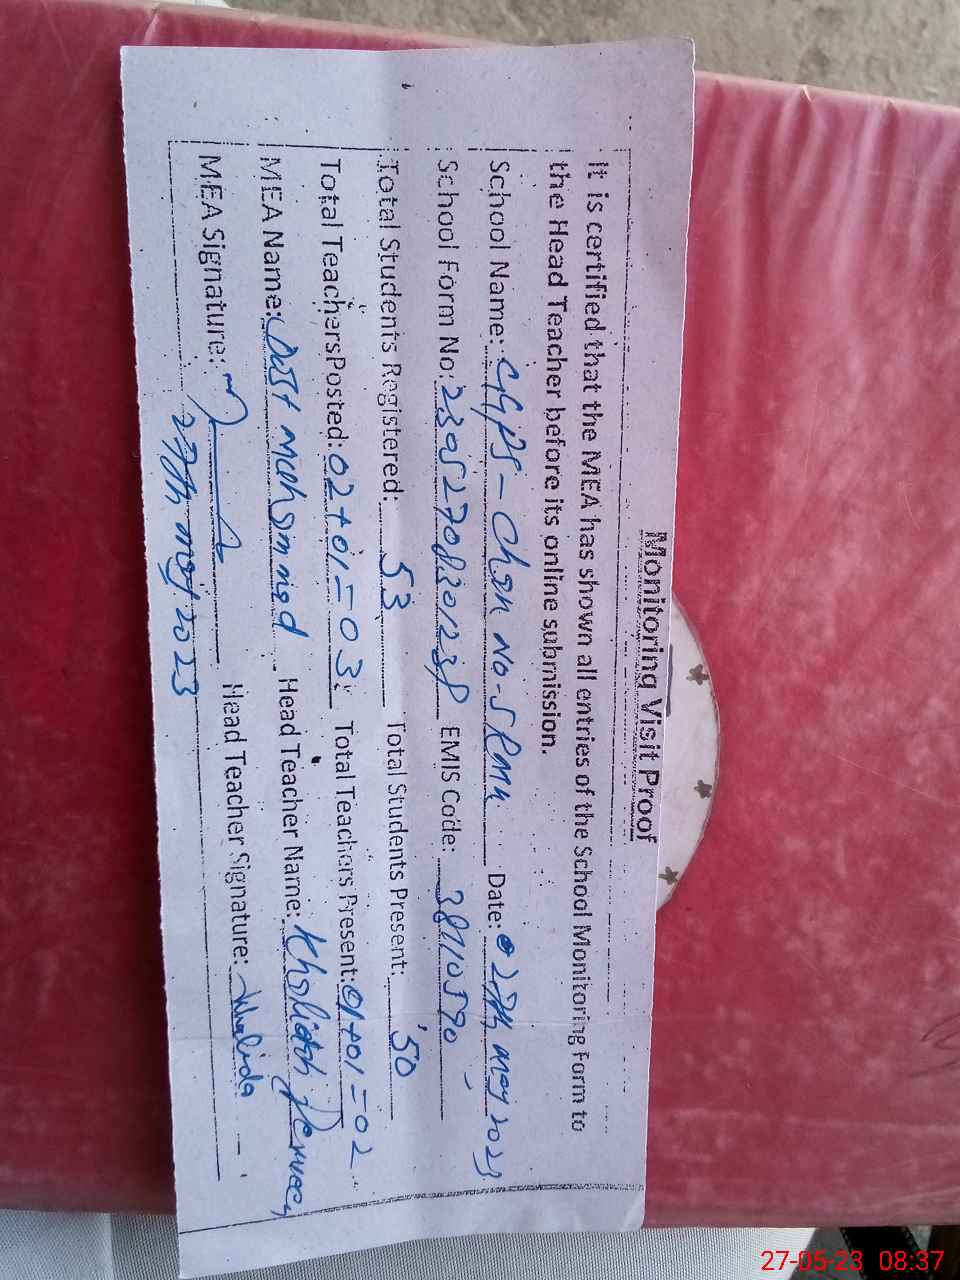 Monitoring Visit Proof
It is certified that the MEA has shown all entries of the School Monitoring Form to
the Head Teacher before its online submission.
School Name: GGPS-Chak No-5 RMK Date: 27th may 2023
School Form No: EMIS Code:
Total Students Registered: 53 Total Students Present: 50
Total Teachers Posted: 02+01=03 Total Teachers Present: 01+01=02
MEA Name: Dost Muhammad Head Teacher Name: Khalidah
MEA Signature: Head Teacher Signature: Khalida
27th may 2023
27-05-23 08:37